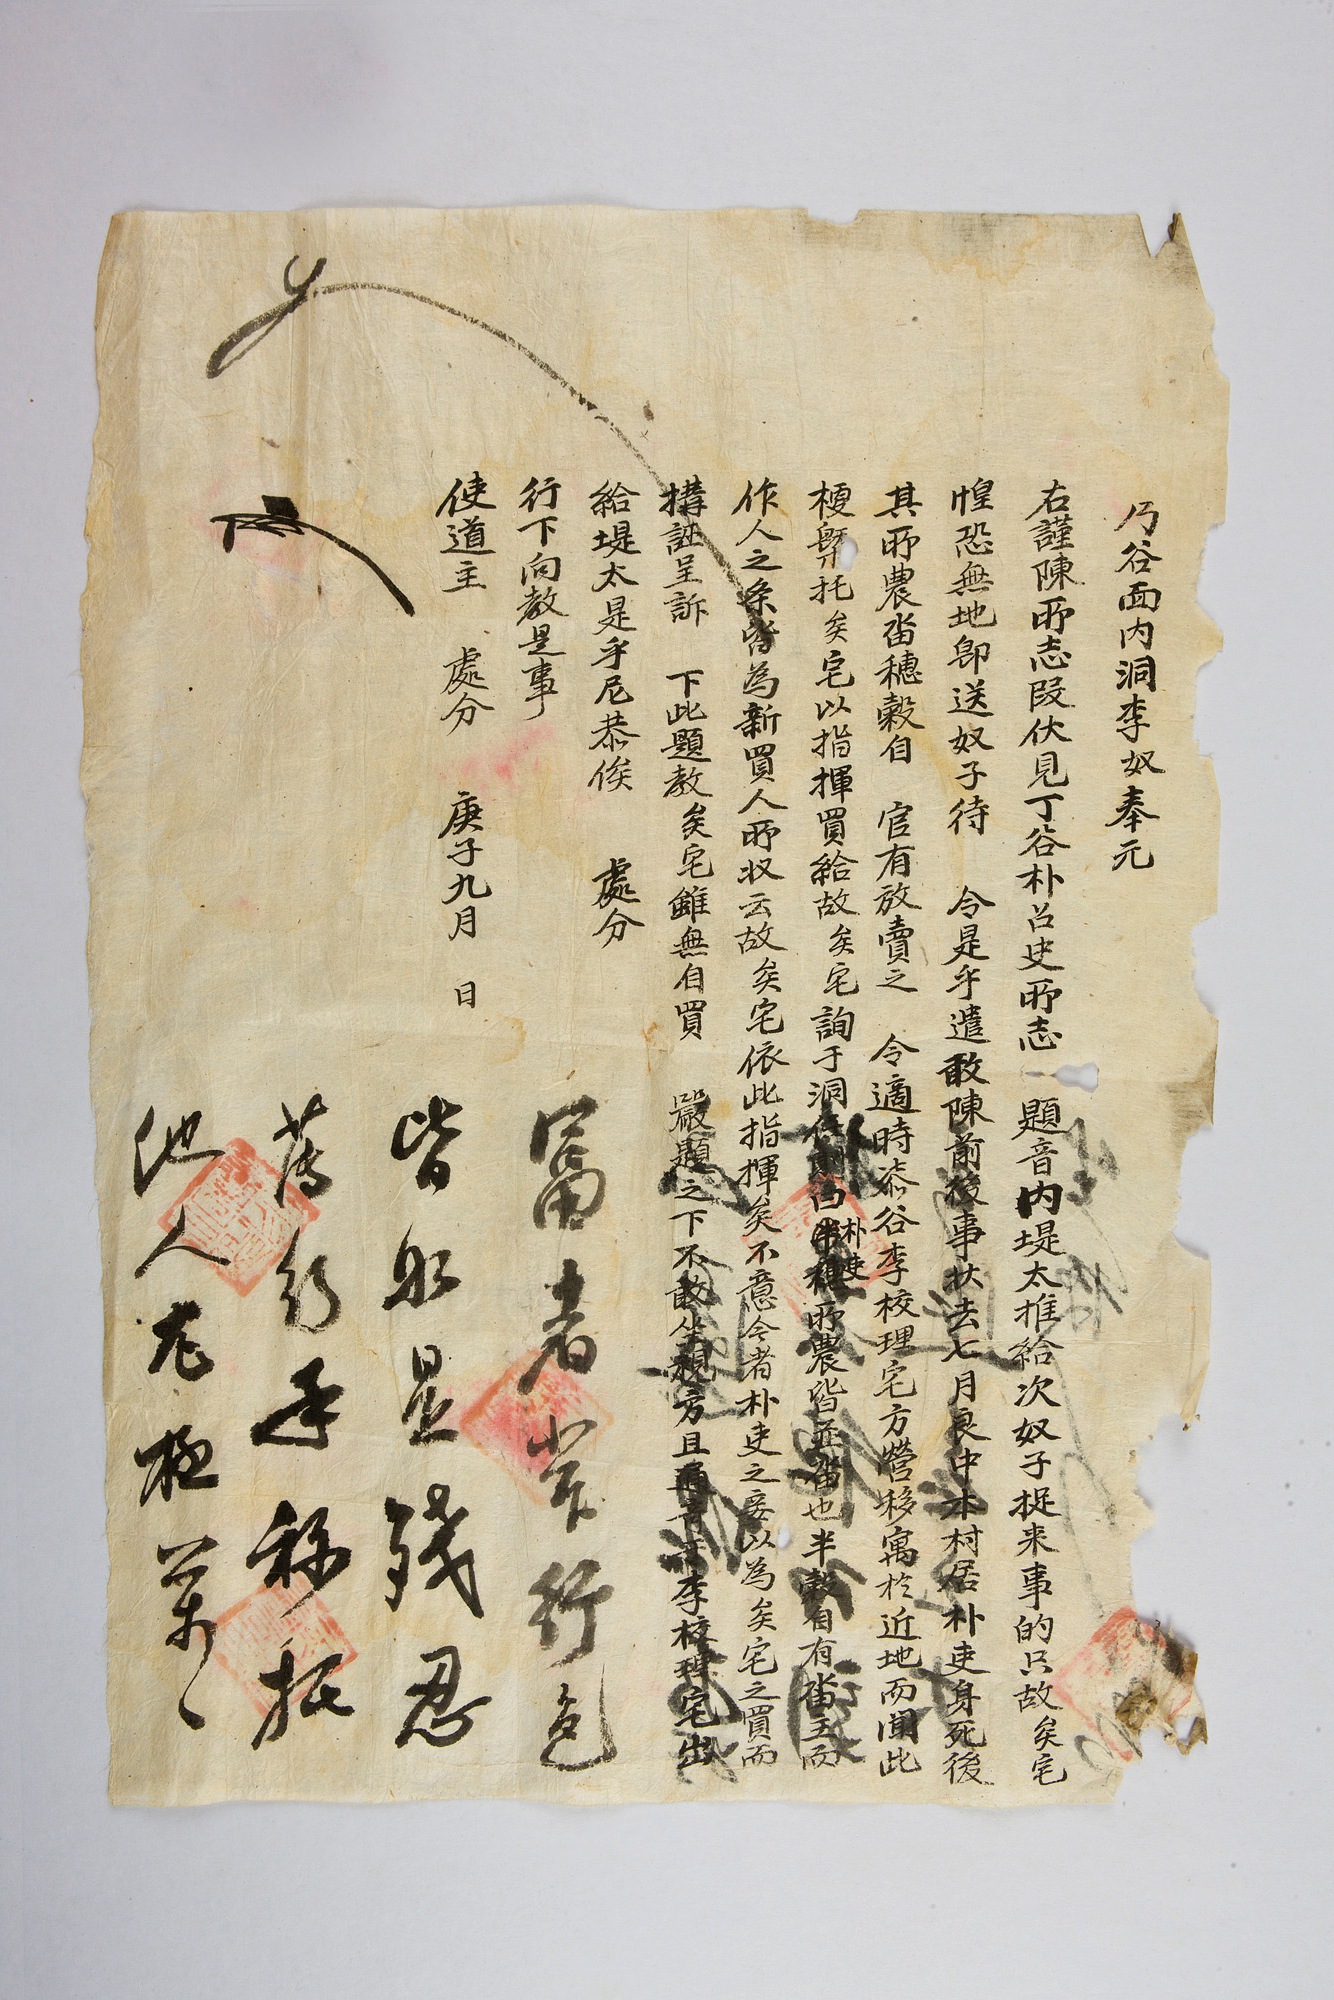 乃谷面内洞李奴奉元
右謹陳所志段伏見丁谷朴召史所志 題音内堤太推給次奴子捉来事的只故矣宅
惶恐無地卽送奴子待 令是乎遣敢陳前後事状去七月良中本村居朴吏身死後
其所農畓穗穀自 官有放賣之 令適時漆谷李校理宅方營移寓於近地而聞此
梗槩托矣宅以指揮買給故矣宅詢于洞 則曰朴吏 所農皆並畓也半穀自有畓主而
作人之条皆為新買人所收云故矣宅依此指揮矣不意今者朴吏之妾以為矣宅之買而
搆誣呈訴 下此題教矣宅雖無自買 嚴題之下不敢坐視方且 李校理宅出
給堤太是乎尼恭俟 處分
行下向教是事
使道主 處分 庚子九月 日
富者常行色
皆出是殘忍
萬
他人尤極萬〻